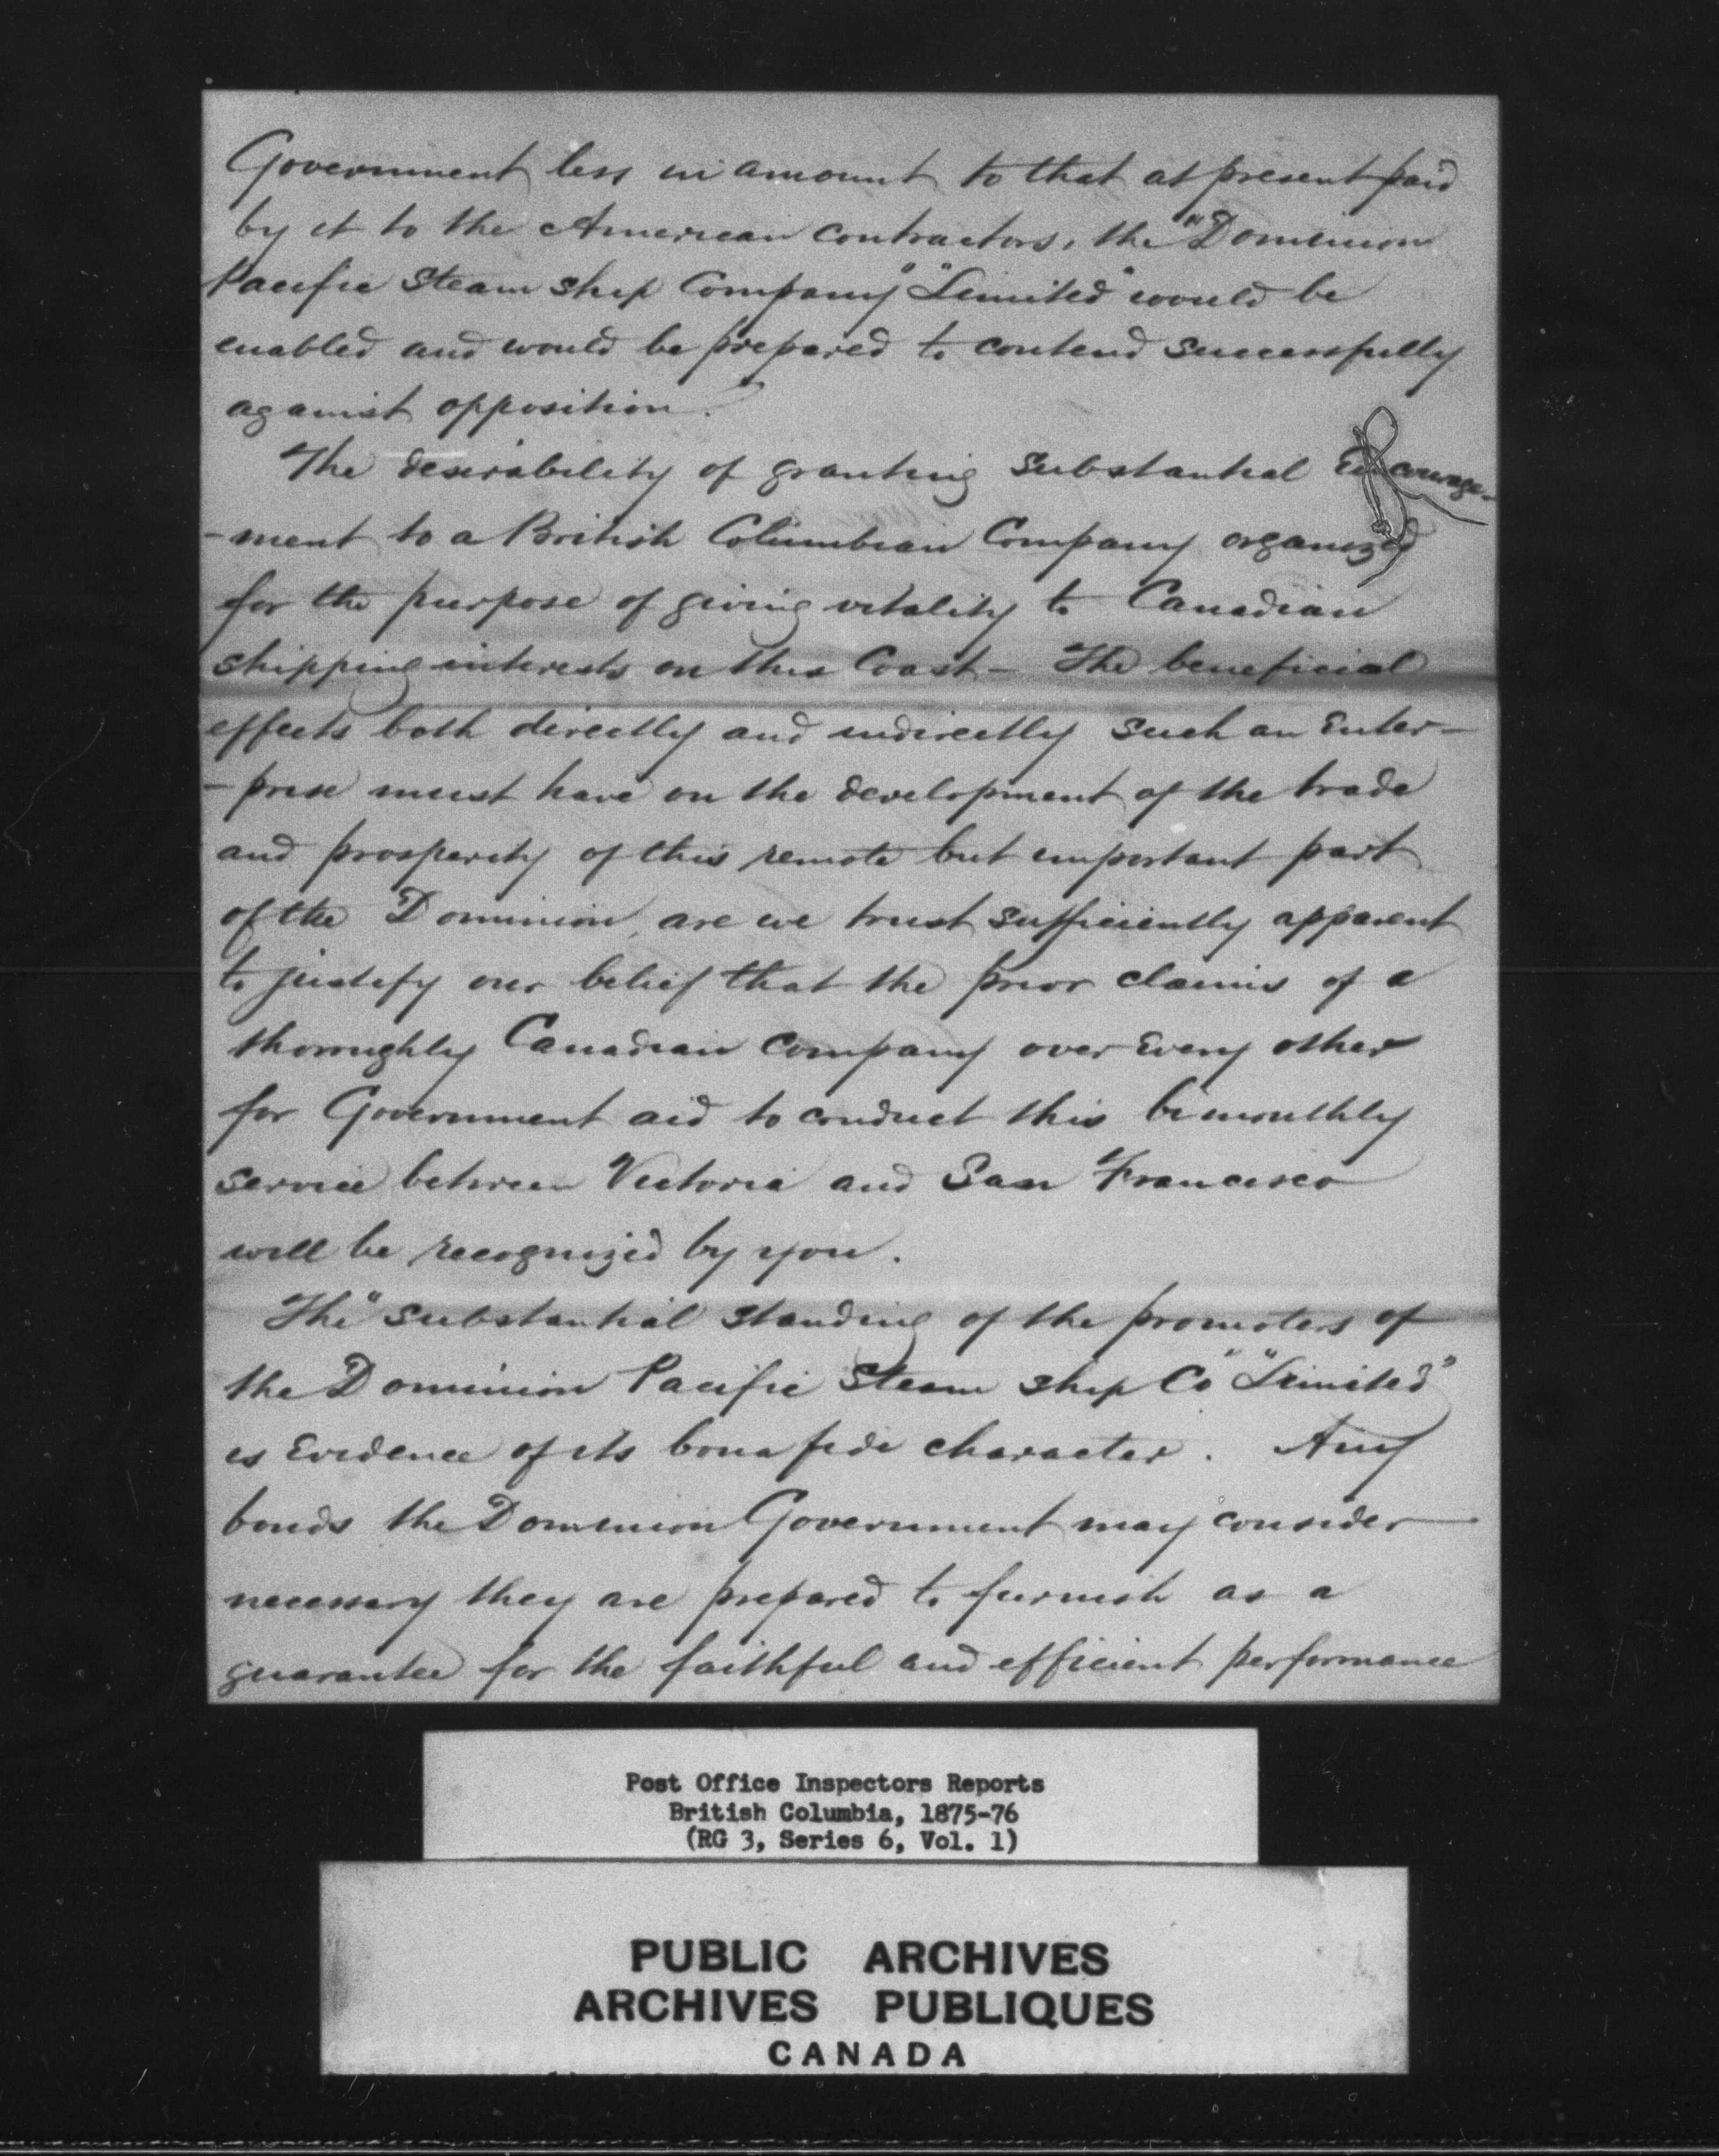 Government less in amount to that at present paid
by it to the American contractors, the "Dominion
Pacific Steam ship Company" "Limited" would be
enabled and would be prepared to contend successfully
against opposition.
The desirability of granting substantial Encourage-
-ment to a British Columbian Company organized
for the purpose of giving vitality to Canadian
shipping interests on this Coast - The beneficial
effects both directly and indirectly such an Enter-
-prise must have on the development of the trade
and prosperity of this remote but important part
of the Dominion, are we trust sufficiently apparent
to justify our belief that the prior claims of a
thoroughly Canadian Company over Every other
for Government aid to conduct this bimonthly
service between Victoria and San Francisco
will be recognized by you.
The "substantial standing of the promoters of
the Dominion Pacific Steam ship Co" "Limited"
is Evidence of its bona fide character. Any
bonds the Dominion Government may consider
necessary they are prepared to furnish as a
guarantee for the faithful and efficient performance
Post Office Inspectors Reports
British Columbia, 1875-76
(RG 3, Series 6, Vol. 1)
PUBLIC ARCHIVES
ARCHIVES PUBLIQUES
CANADA